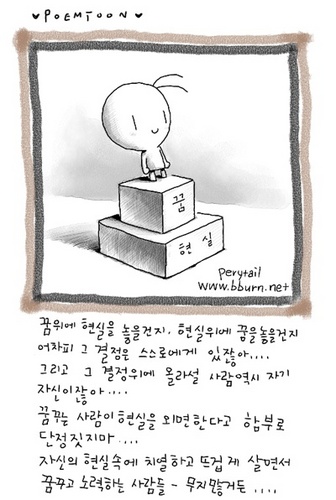 ♥POEMTOON♥
꿈
현실
perytail
www.bburn.net
꿈위에 현실을 놓을건지, 현실위에 꿈을놓을건지
어차피 그 결정은 스스로에게 있잖아....
그리고 그 결정위에 올라설 사람역시 자기
자신이잖아....
꿈꾸는 사람이 현실을 외면한다고 함부로
단정짓지마....
자신의 현실속에 치열하고 뜨겁게 살면서
꿈꾸고 노력하는 사람들 - 무지많거든....